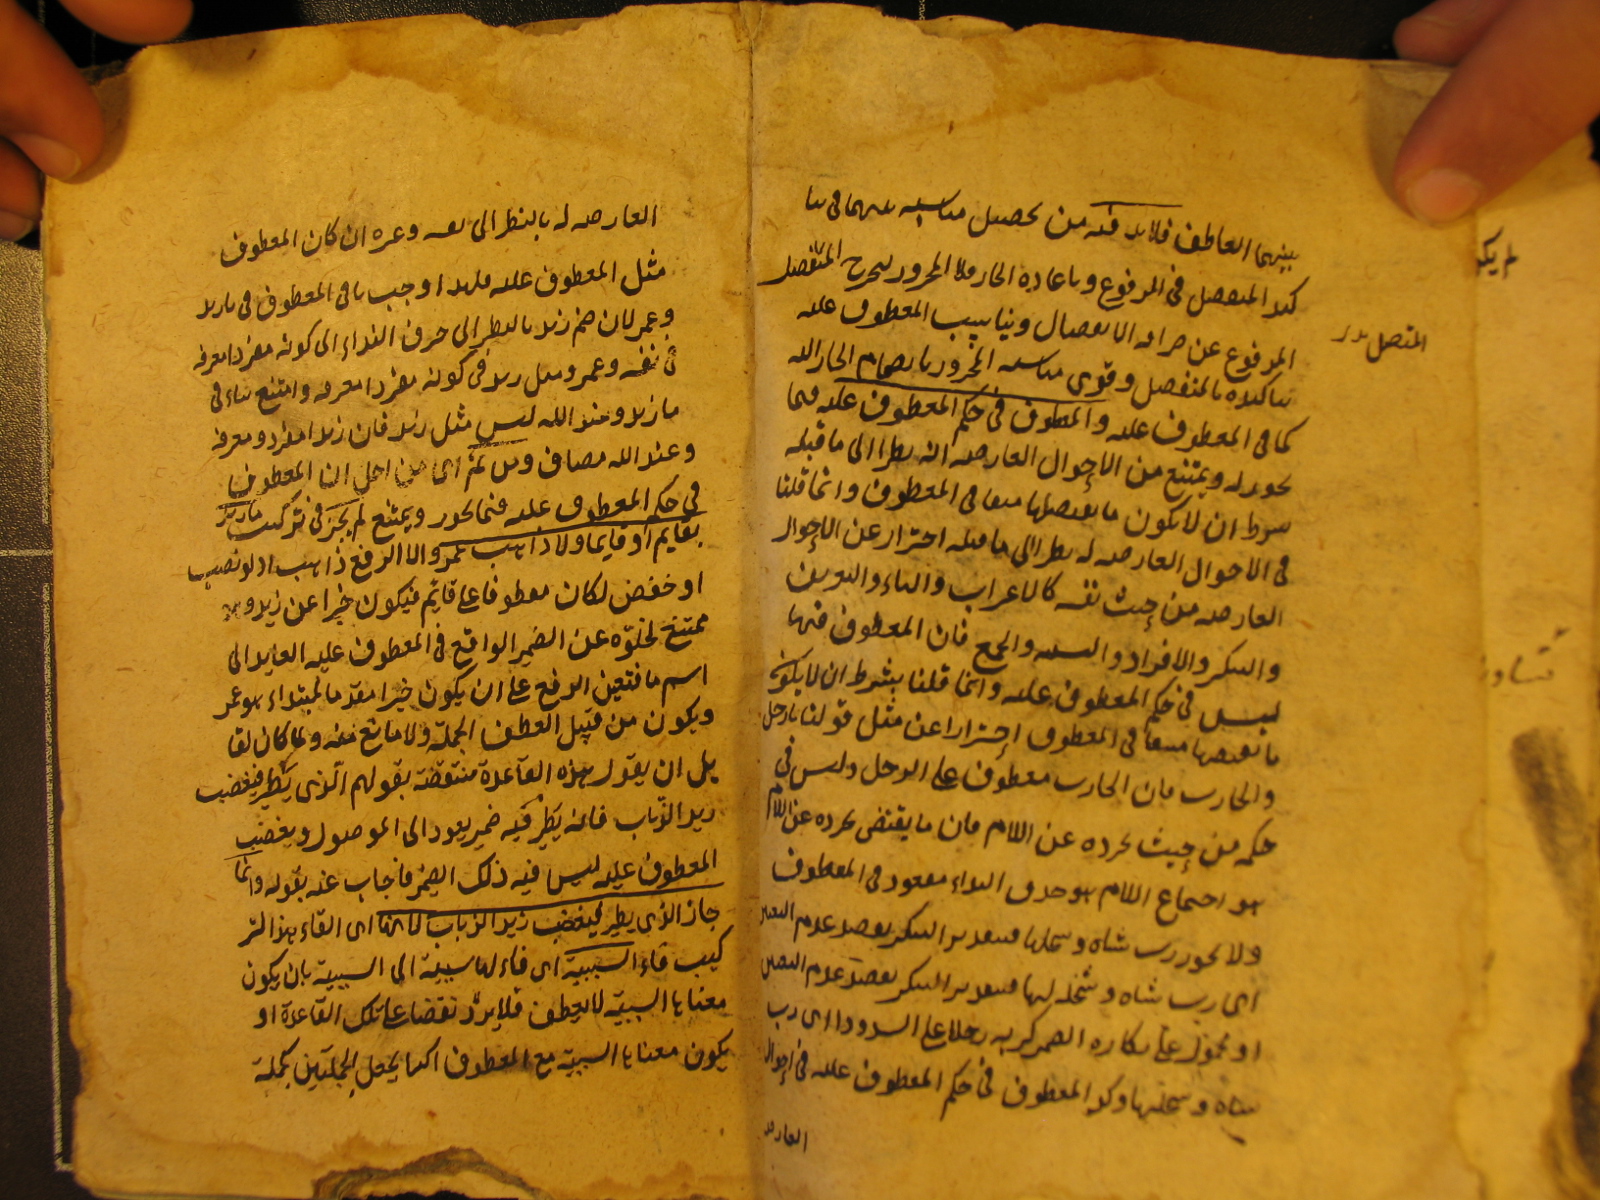 بينهما العاطف فلابد فيه من تحصيل مناسبة بينهما في تا
كيد المتصل في المرفوع وباعادة الجار فلا المجرور ليخرج المتصل
المرفوع عن صرافة الاتصال ويناسب المعطوف عليه
بتاكيده بالمنفصل وقوى مناسبة المجرور بانضمام الجار اليه
كما في المعطوف عليه والمعطوف في حكم المعطوف عليه فيما
يجوز له ويمتنع من الاحوال العارضة له نظرا الى ما قبله
بشرط ان لا يكون ما يقتضيها منتفيا في المعطوف وانما قلنا
في الاحوال العارضة له نظرا الى ما قبله احتراز عن الاحوال
العارضة من حيث نفسه كالاعراب والبناء والتعريف
والتنكير والافراد والتثنية والجمع فان المعطوف فيها
ليس في حكم المعطوف عليه وانما قلنا بشرط ان لا يكون
ما يقتضيها منتفيا في المعطوف احترازا عن مثل قولنا يا رجل
والحارث فان الحارث معطوف على الرجل وليس في
حكمه من حيث تجرده عن اللام فان ما يقتضى تجرده عن اللام
هو اجتماع اللام وحرف النداء مفقود في المعطوف
ولا يجوز رب شاة وسخلتها فبتقدير التنكير لقصد عدم التعين
اى رب شاة وسخلة لها فبتقدير التنكير لقصد عدم التعين
او محمول على نكارة الضمير كربه رجلا على الشذوذ اى رب
شاة وسخلتها وكذا المعطوف في حكم المعطوف عليه في احوال
العارضة
المتصل
لم يكن
العارضة له بالنظر الى نفسه وغيره ان كان المعطوف
مثل المعطوف عليه فلهذا وجب بنا في المعطوف في يا زيد
وعمر لان ضم زيد بالنظر الى حرف النداء الى كونه مفردا معرفة
في نفسه وعمرو مثل زيد في كونه مفردا معرفة وامتنع بناءه في
يا زيد وعبد الله ليس مثل زيد فان زيدا مفرد ومعرفة
وعبد الله مضاف ومن ثم اى من اجل ان المعطوف
في حكم المعطوف عليه فيما يجوز ويمتنع لم يجز في تركيب ما زيد
بقايم او قايما ولا ذاهب عمرو الا الرفع ذاهب اذ لو نصب
او خفض لكان معطوفا على قائم فيكون خبرا عن زيد وهو
ممتنع لخلوه عن الضمير الواقع في المعطوف عليه العايد الى
اسم ما فتعين الرفع على ان يكون خبرا مقدما لمبتداء هو عمر
ويكون من قبيل العطف الجملة ولا مانع منه ولما كان لقا
يل ان يقول هذه القاعدة منتقضة بقولهم الذى يطير فيغضب
زيد الذباب فانه يطير فيه ضمير يعود الى الموصول ويغضب
المعطوف عليه ليس فيه ذلك الضمير فاجاب عنه بقوله وانما
جاز الذى يطير فيغضب زيد الذباب لانها اى الفاء بهذا التر
كيب فاء السببية اى فاء لها سببية الى السببية بان يكون
معناها السببية لا العطف فلا يرد نقضا على تلك القاعدة او
يكون معناها السببية مع المعطوف اكما يجعل الجملتين كجملة